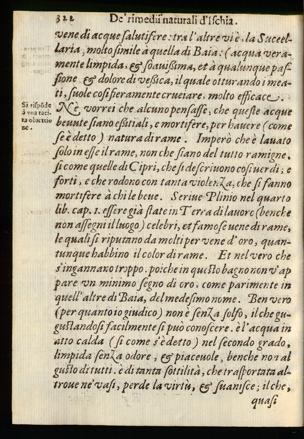 322 De' rimedii naturali d'Ischia.
vene di acque salutifere: tra l'altre vi è la Suceel-
laria, molto simile a quella di Baia: (acqua vera-
mente limpida, & soauissima, et à qualunque pas-
sione & dolore di vessica, il quale otturando i mea-
ti, suole così fieramente cruciare, molto efficace.
Nè vorrei che alcuno pensasse, che queste acque
beuute siano essitiali, e mortifere, per hauere (come
s'è detto) natura di rame. Imperò che è lauato
solo in esse il rame, non che siano del tutto ramigne,
sì come quelle di Cipri, che si descriuono così uerdi, e
forti, e che rodono con tanta violenza, che si fanno
mortifere à chi le beue. Scriue Plinio nel quarto
lib. cap. I. essere già state in Terra di lauoro (benche
non assegni il luogo) celebri, et famose uene di rame,
le quali si riputano da molti per vene d'oro, quan-
tunque habbino il color di rame. Et nel vero che
s'ingannano troppo, poiche in questo bagno non v'ap
pare vn minimo segno di oro, come parimente in
quell'altre di Baia, del medesimo nome. Ben verò
(per quanto io giudico) non è senza solfo, il che gu-
gustandosi facilmente si può conoscere. è l'acqua in
atto calda (sì come s'è detto) nel secondo grado,
limpida senza odore, & piaceuole, benche non al
gusto di tutti. è di tanta sottilità, che trasportata al-
troue ne' vasi, perde la virtù, & suanisce; il che,
quasi
Si rispōde
à vna taci-
ta obiettio
ne.